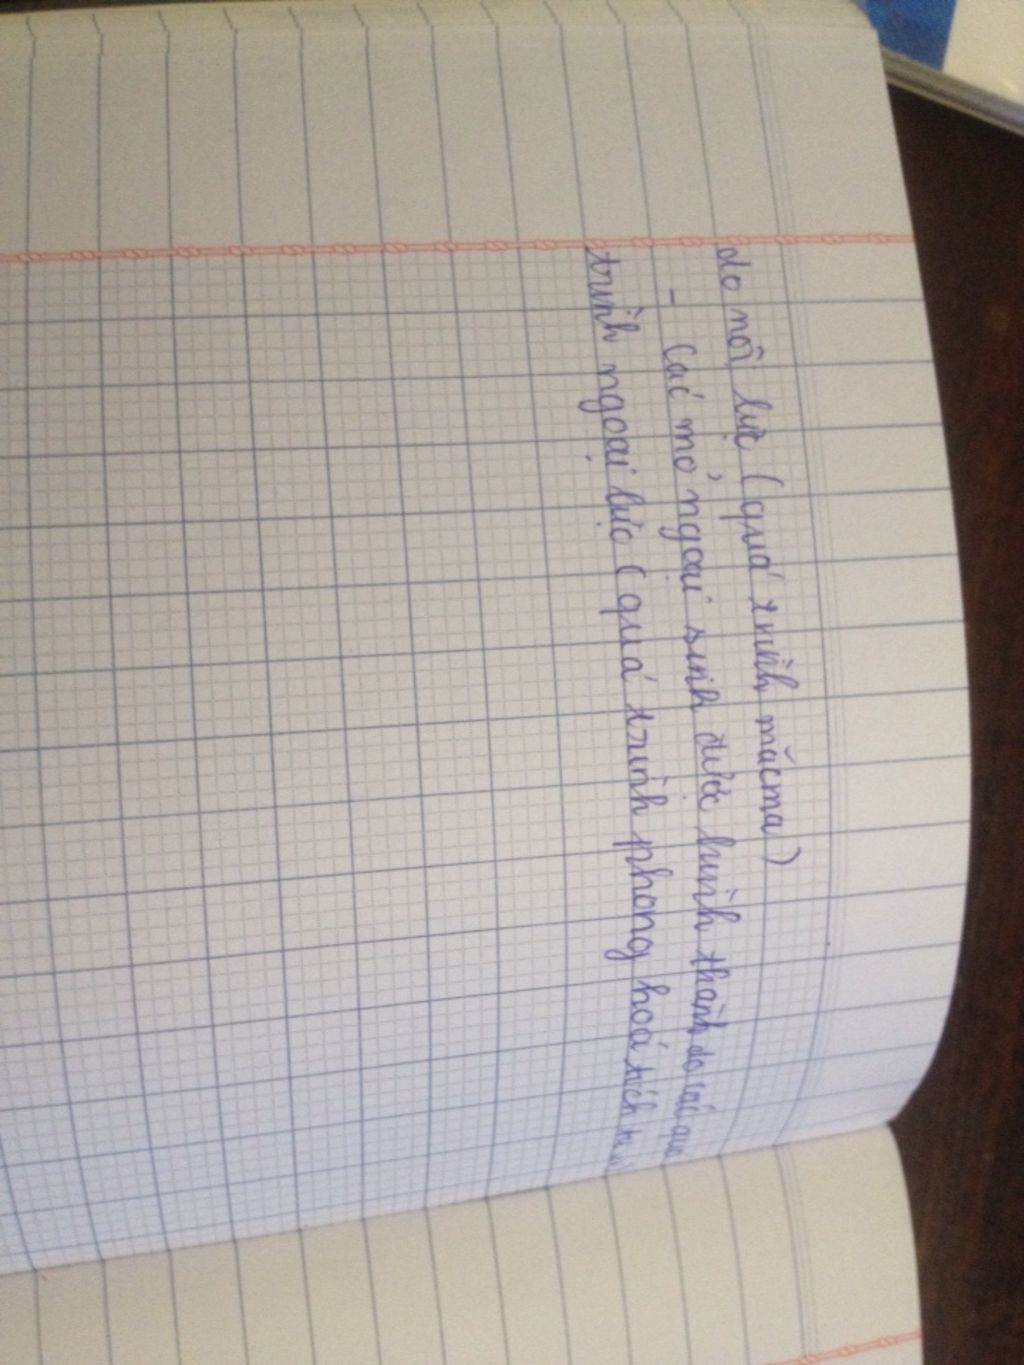 do nội lực (quá trình măcma)
- Các mỏ ngoại sinh được hình thành do các quá
trình ngoại lực (quá trình phong hoá tích tụ